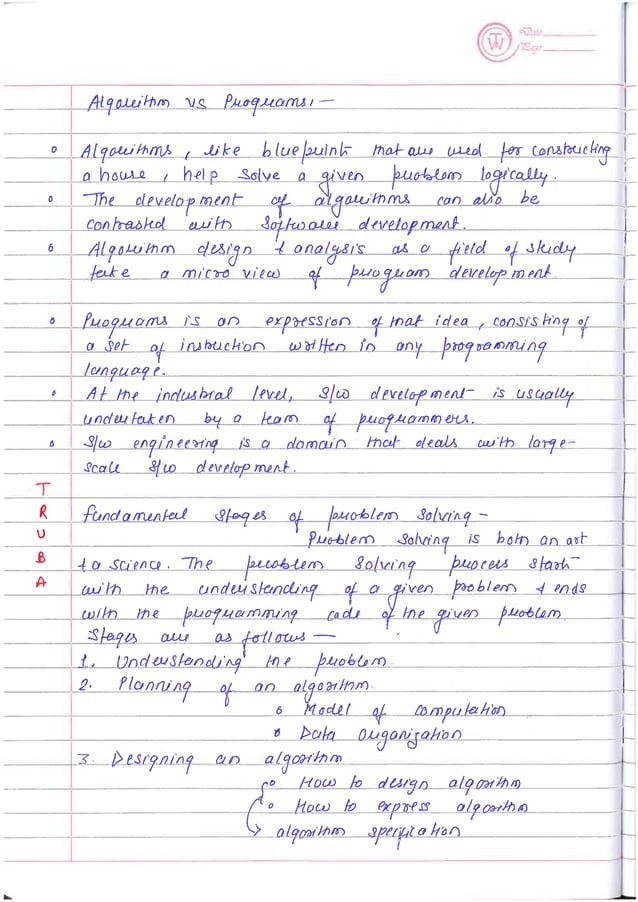 Date
Page
Algorithm vs Programs:-
Algorithms, like blueprints that are used for constructing
a house, help solve a given problem logically.
The development of algorithms can also be
contrasted with software development.
Algorithm design & analysis as a field of study
take a micro view of program development.
Programs is an expression of that idea, consisting of
a set of instruction written in any programming
language.
At the industrial level, S/w development is usually
undertaken by a team of programmers.
S/w engineering is a domain that deals with large-
scale S/w development.
T
R
U
B
A
fundamental stages of problem solving -
Problem solving is both an art
& a science. The problem solving process starts
with the understanding of a given problem & ends
with the programming code of the given problem.
Stages are as follows -
1. Understanding the problem.
2. Planning of an algorithm.
Model of computation
Data Organization
3. Designing an algorithm
How to design algorithm
How to express algorithm
algorithm specification